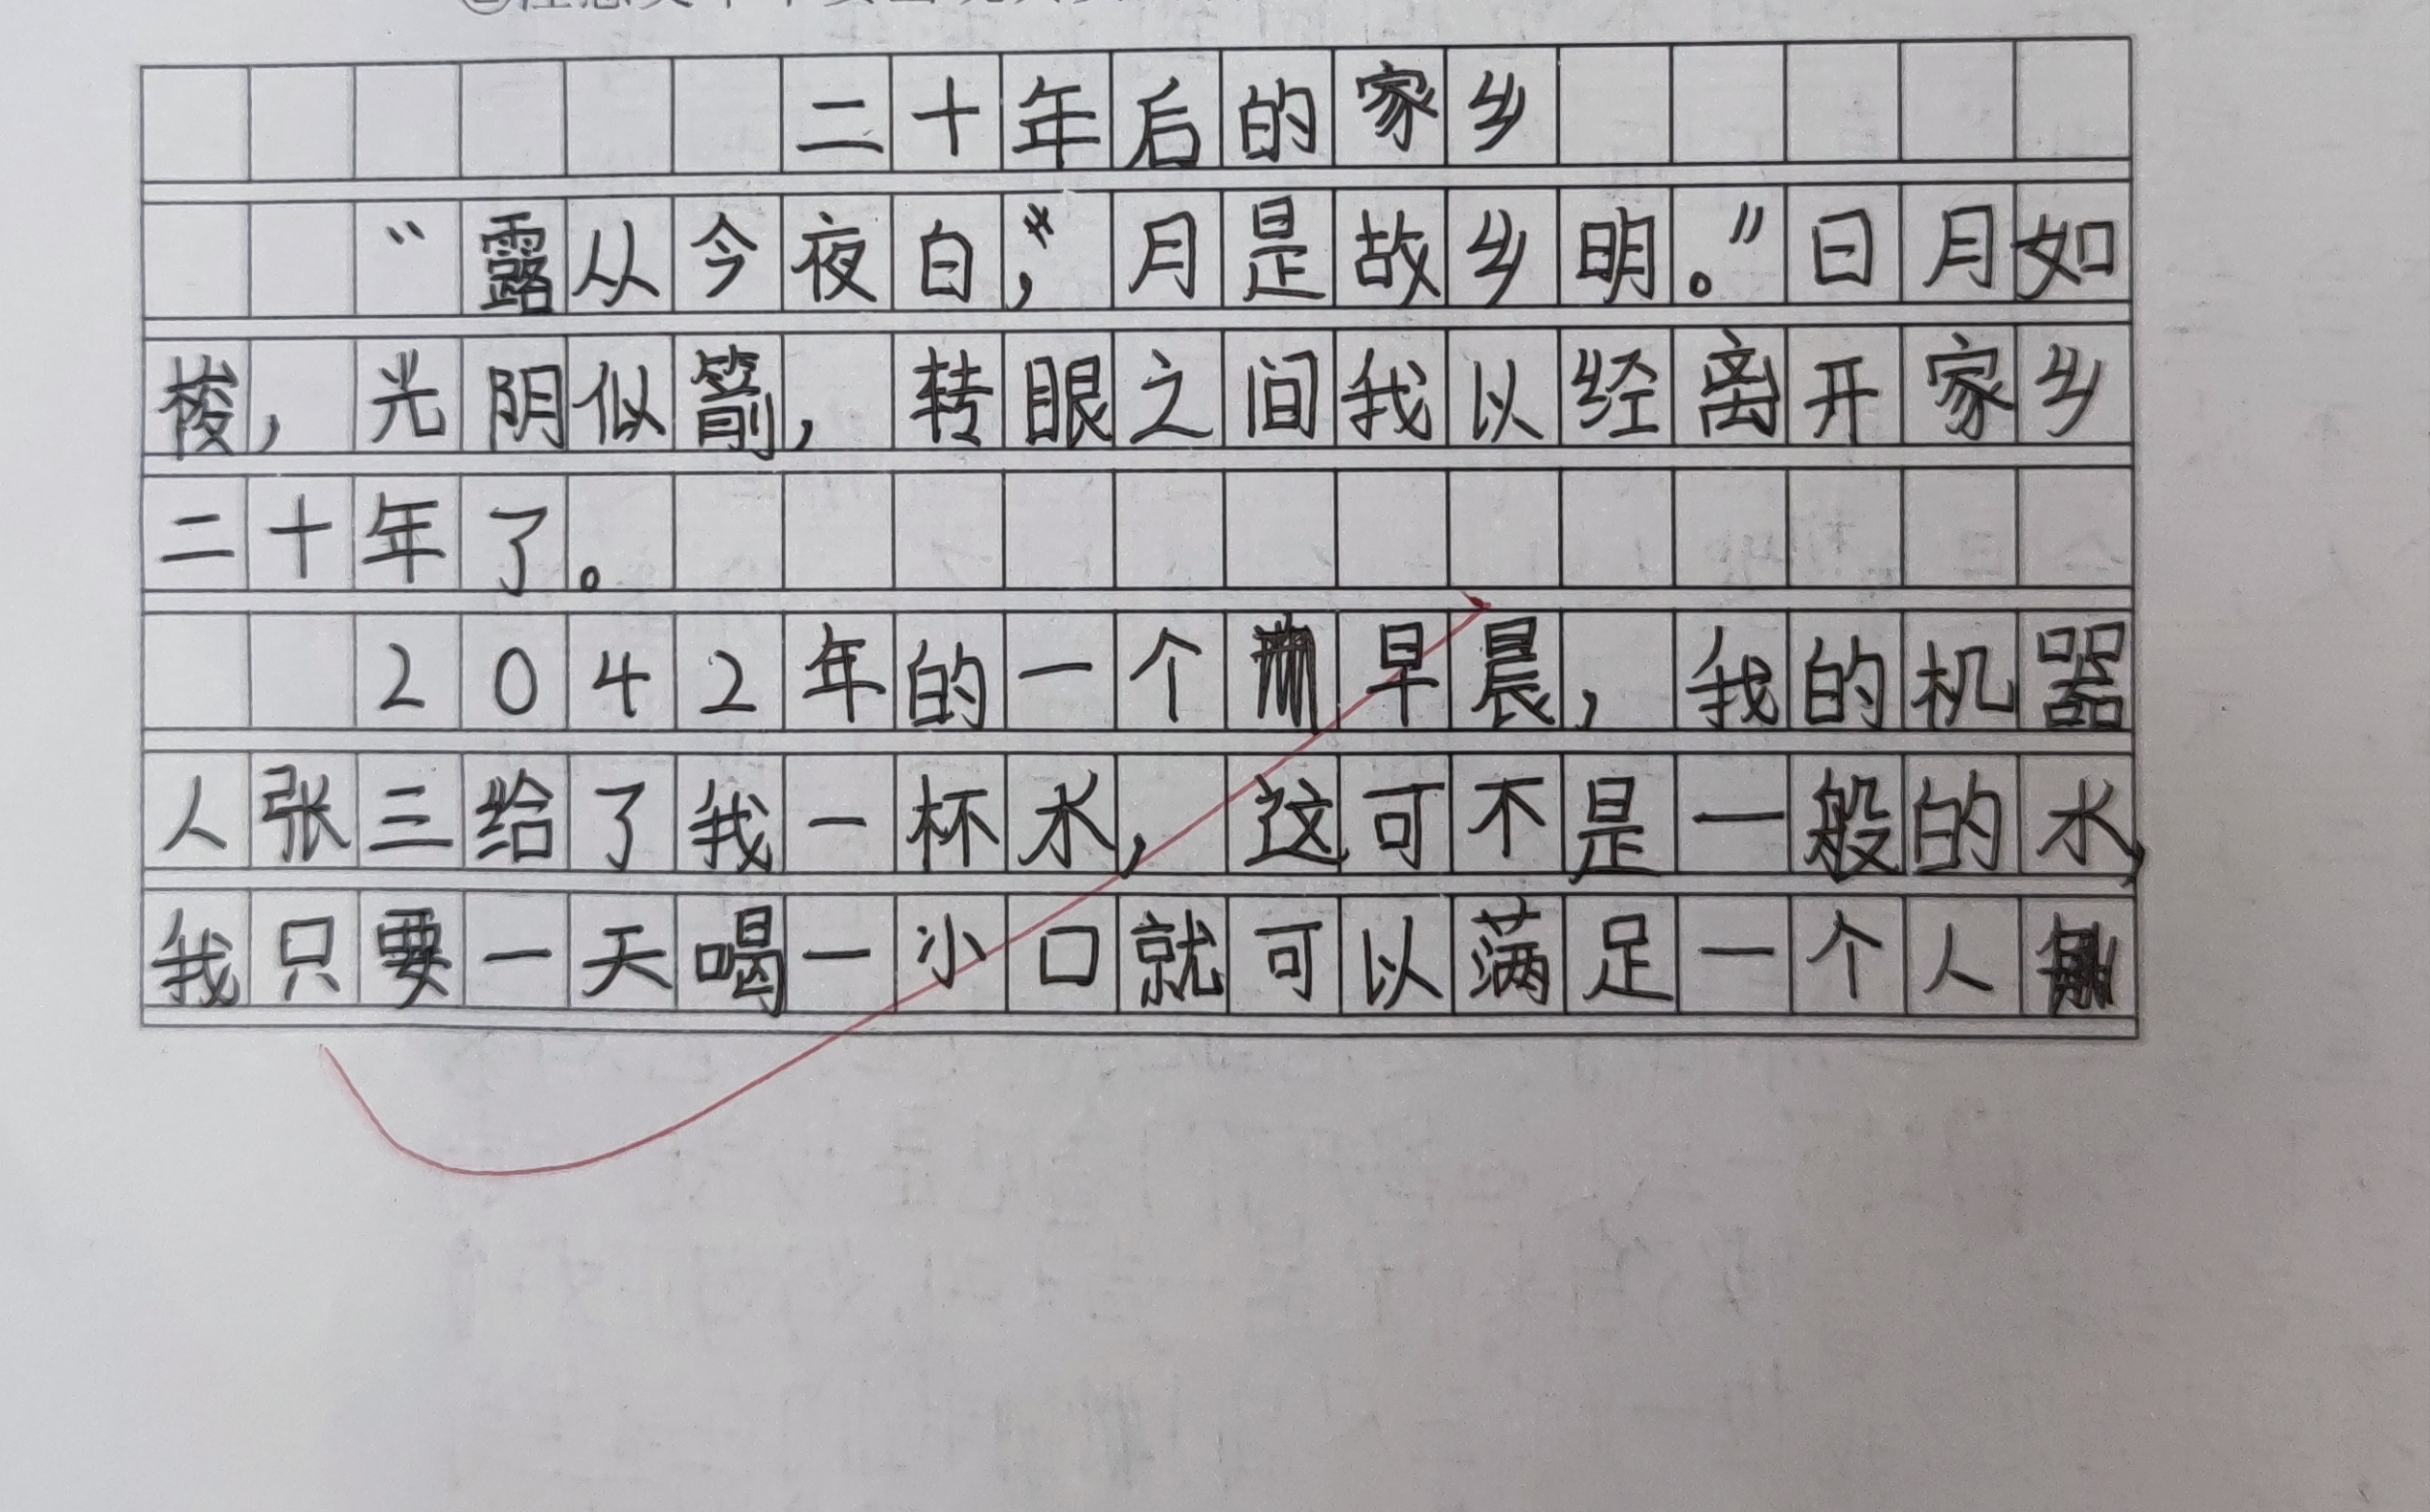 二十年后的家乡
“露从今夜白,月是故乡明。”日月如
梭,光阴似箭,转眼之间我以经离开家乡
二十年了。
2042年的一个早晨,我的机器
人张三给了我一杯水,这可不是一般的水,
我只要一天喝一小口就可以满足一个人